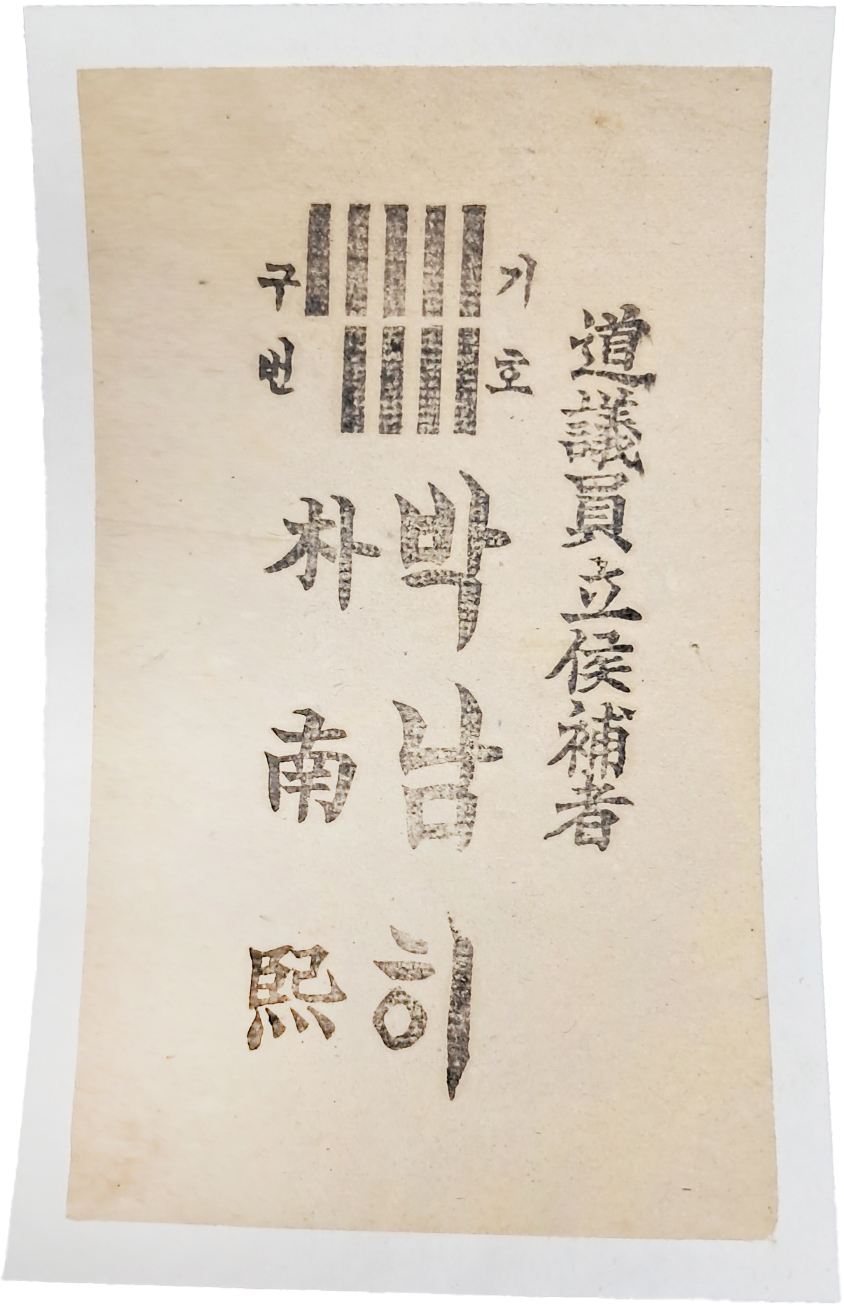 道議員立侯補者
기호
구번
박남히
朴南熙